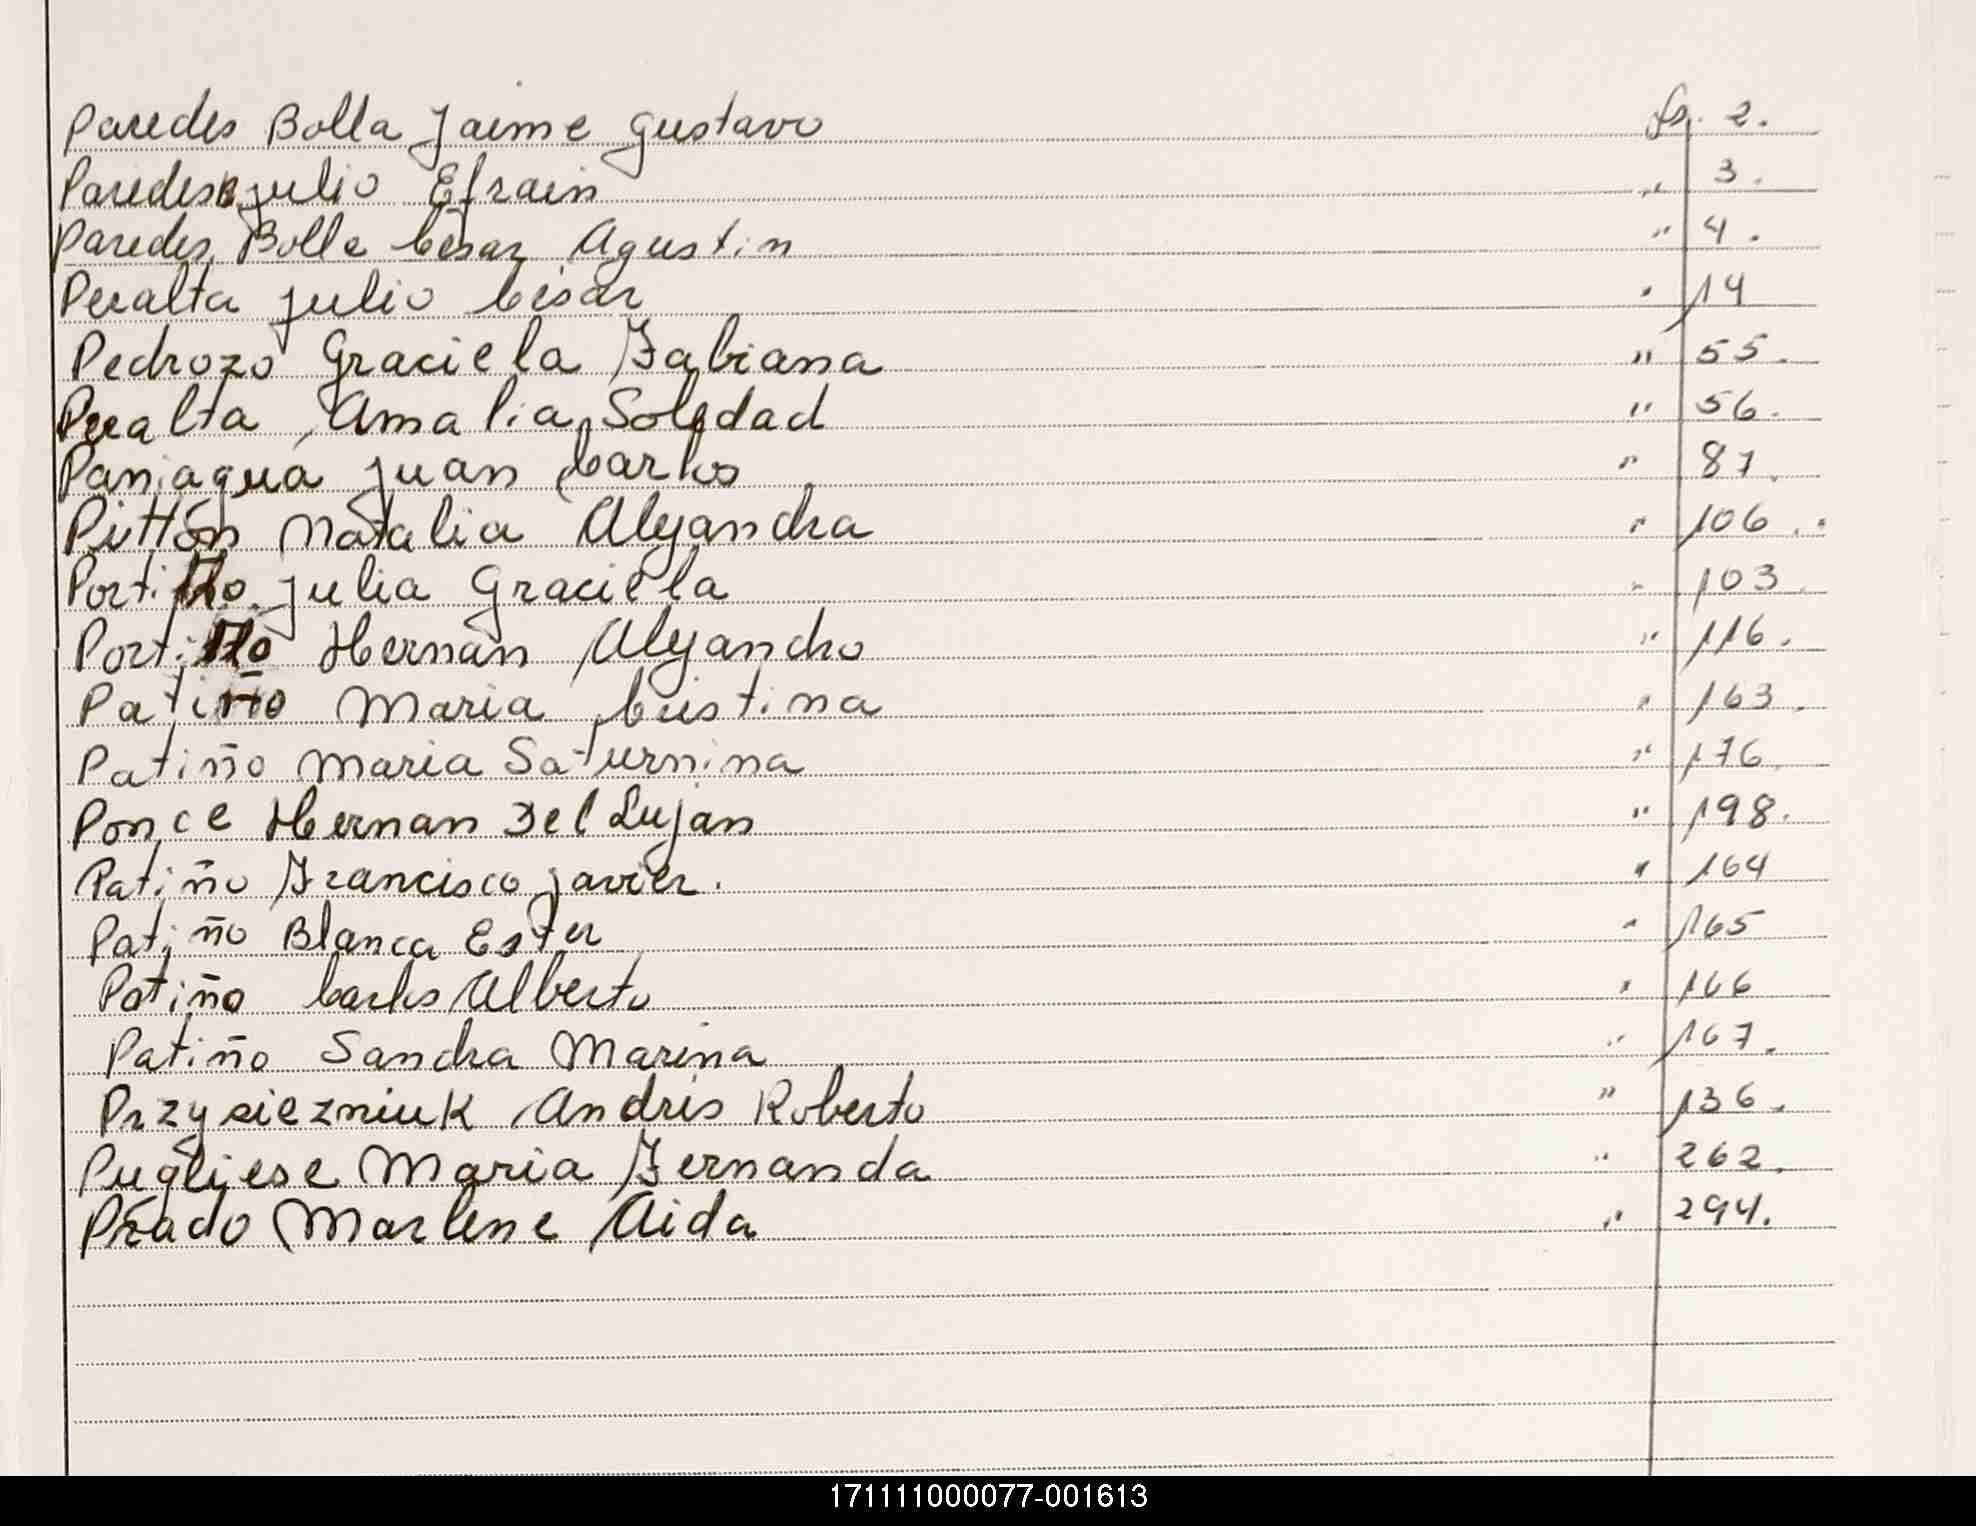 Paredes Bolla Jaime Gustavo fs. 2.
Paredes B. Julio Efrain " 3.
Paredes Bolla César Agustin " 4.
Peralta Julio César " 14
Pedrozo Graciela Fabiana " 55.
Peralta Amalia Soledad " 56.
Paniagua Juan Carlos " 87.
Pittón Natalia Alejandra " 106.
Portillo Julia Graciela " 103.
Portillo Hernán Alejandro " 116.
Patiño Maria Cristina " 163.
Patiño Maria Saturnina " 176.
Ponce Hernan Del Lujan " 198.
Patiño Francisco Javier. " 164
Patiño Blanca Ester " 165
Patiño Carlos Alberto " 166
Patiño Sandra Marina " 167.
Przysiezniuk Andrés Roberto " 136.
Pugliese Maria Fernanda " 262.
Prado Marlene Aida " 294.
171111000077-001613